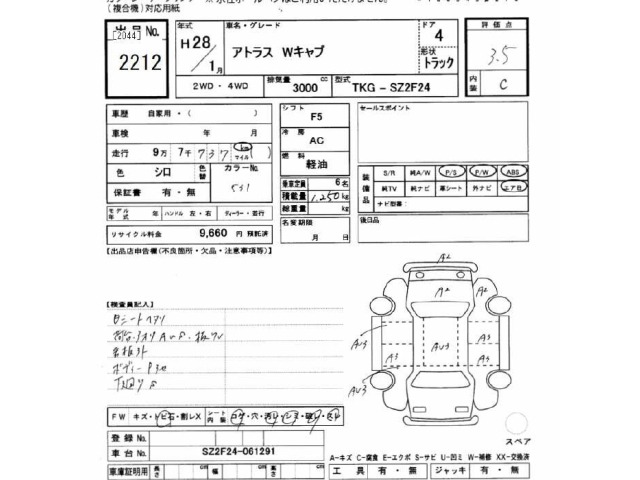 (複合機)対応用紙
出品No.
[2044]
2212
H28/1月
車名・グレード
アトラス Wキャブ
ドア
4
形状
トラック
評価点
3.5
内装
C
2WD・4WD
排気量
3000 cc
型式
TKG - SZ2F24
車歴 自家用・( )
車検 年 月
走行 9万 7千 737 km マイル ( )
色 シロ 色替 カラーNo. 531
保証書 有・無
モデル年式 年 ハンドル 左・右 ディーラー・並行
リサイクル料金 9,660 円 預託済
シフト
F5
冷房
AC
燃料
軽油
乗車定員 6名
積載量 1,250kg
総重量 kg
名変期限
月 日
セールスポイント
装備品
S/R 純A/W P/S P/W ABS
純TV 純ナビ 革シート 外ナビ エアB
ナビ型番:
後日品
[出品店申告欄(不良箇所・欠品・注意事項等)]
[検査員記入]
A2
A2
A2
AU3
AU3
AU3
A3
A3
A3
FW キズ・トビ石・割レX シート内装 コゲ・穴・汚レ・シミ・破レ・スレ
スペア
登録No.
車台No. SZ2F24-061291
A-キズ C-腐食 E-エクボ S-サビ U-凹ミ W-補修 XX-交換済
車庫証明用 長さ cm 幅 cm 高さ cm
工具 有・無 ジャッキ 有・無